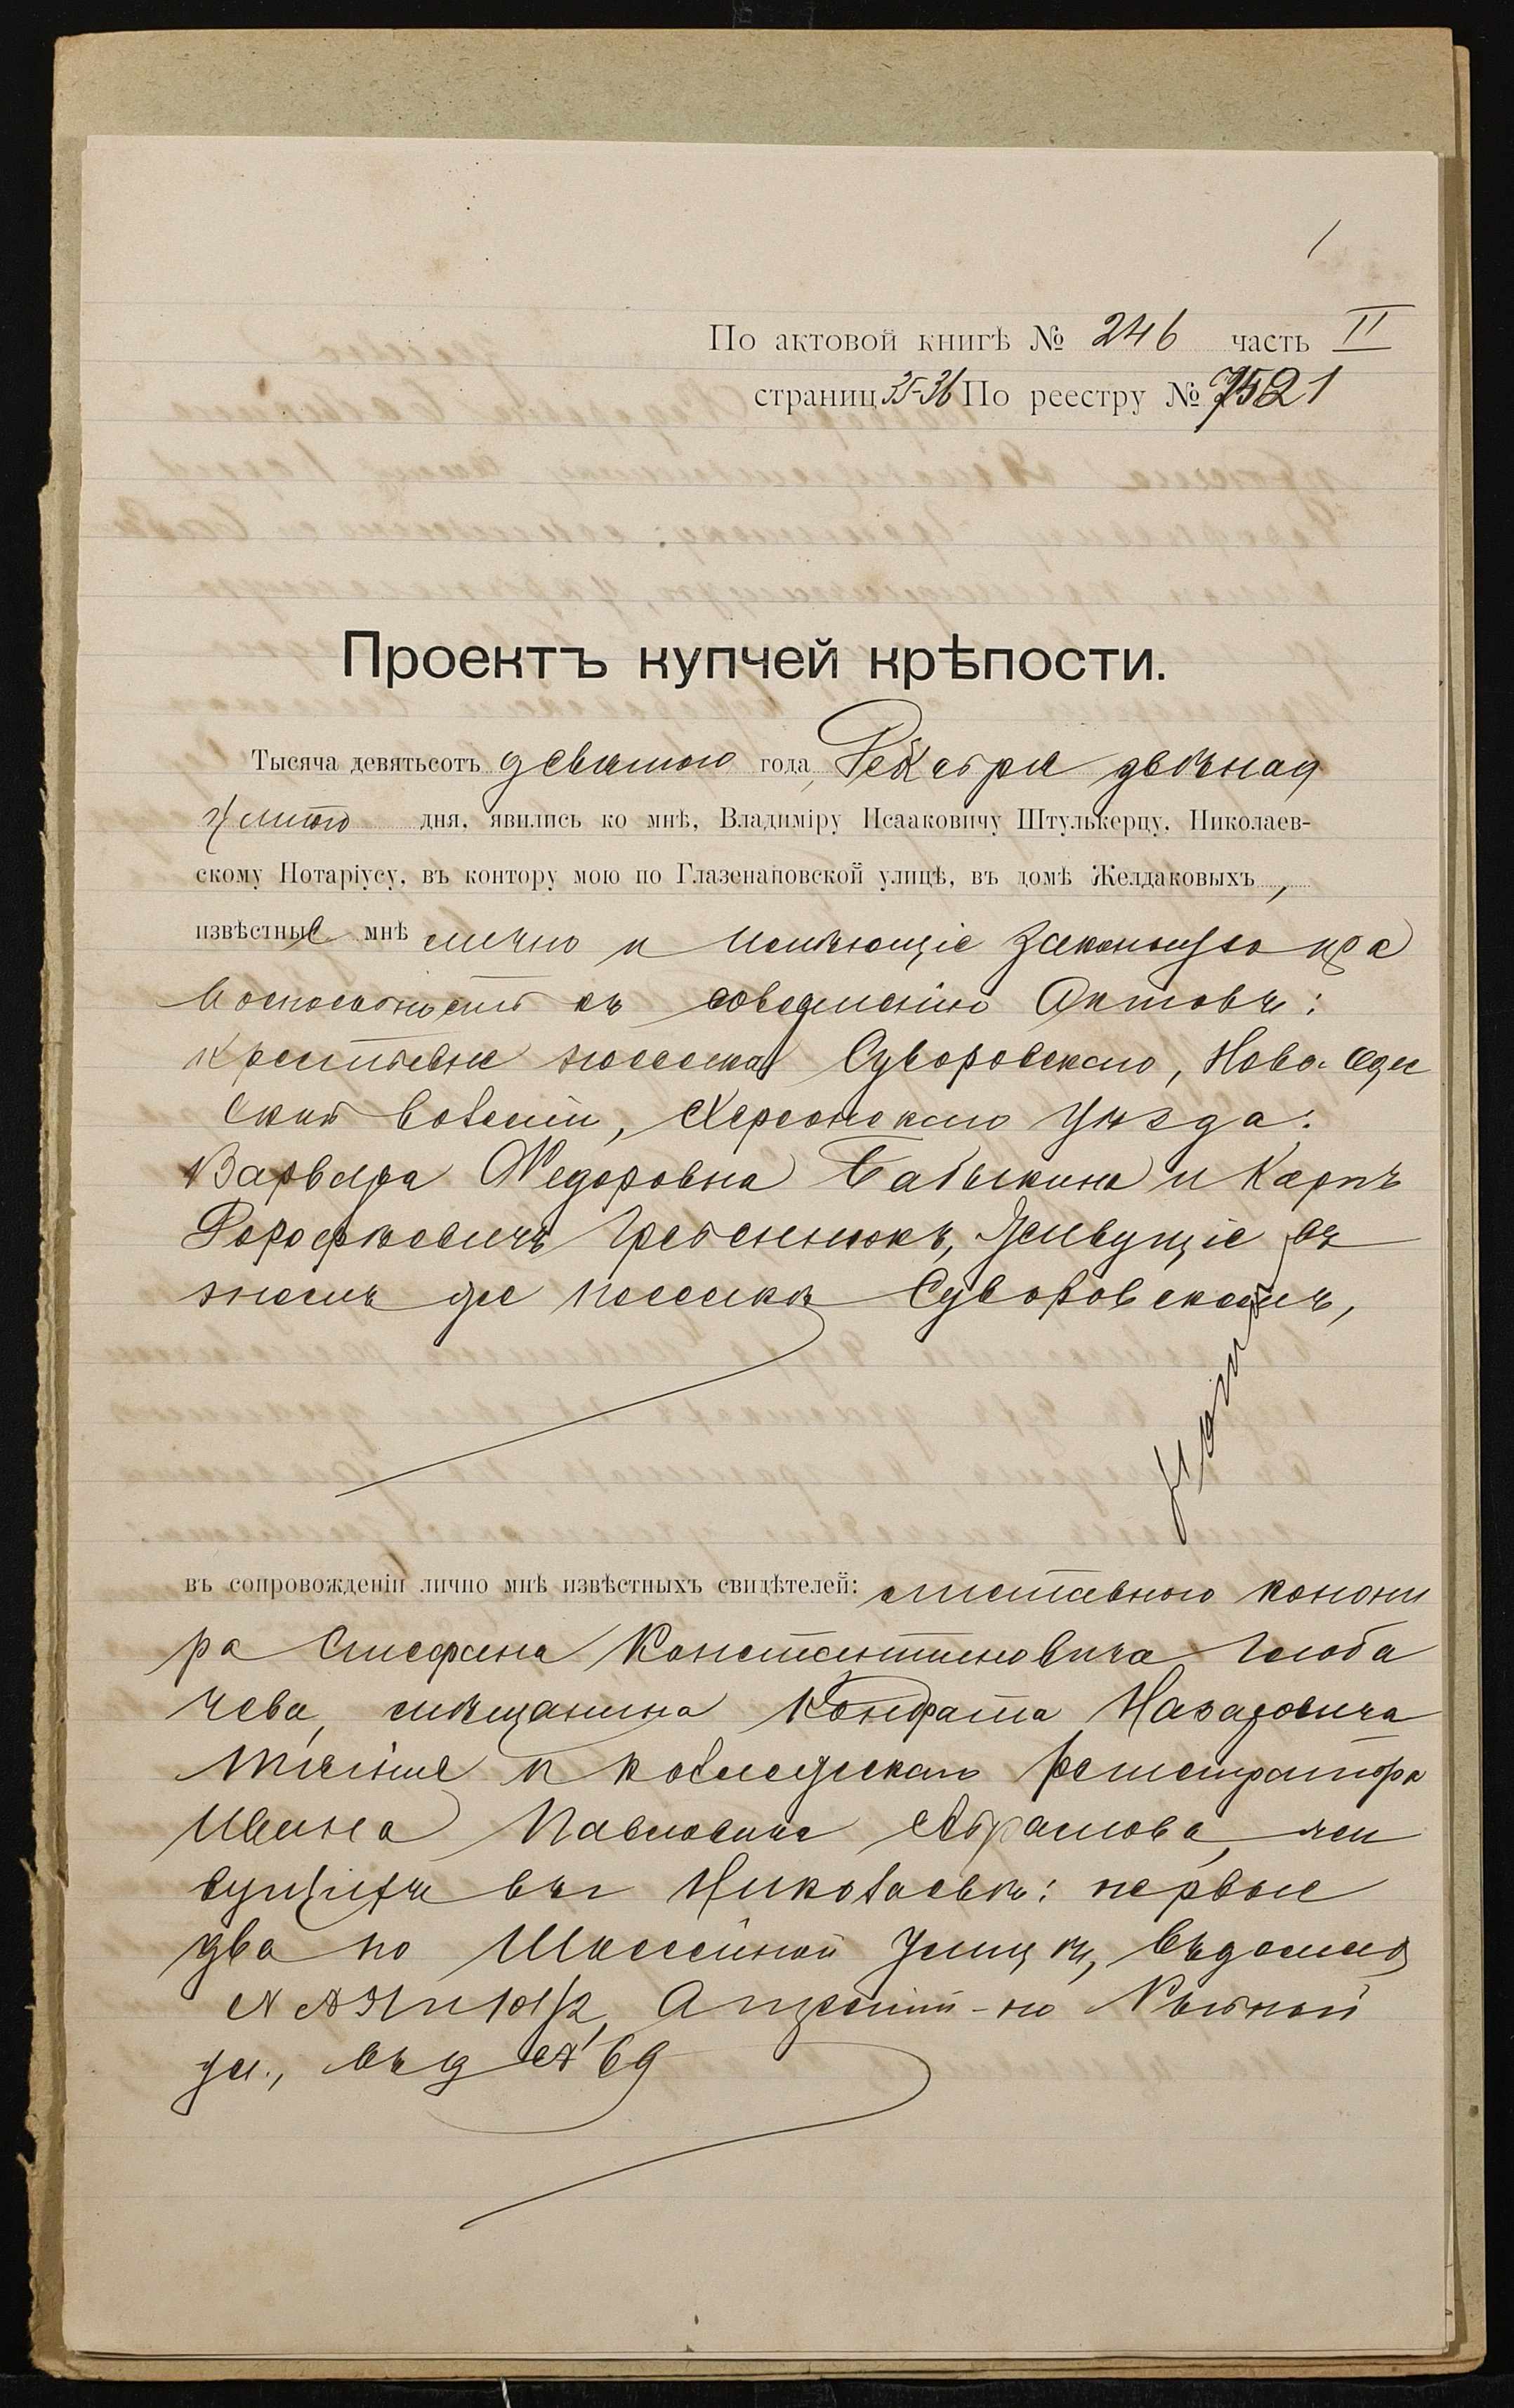 1
По актовой книгѣ № 246 часть II
страниц 35-36 По реестру № 7521
Проектъ купчей крѣпости.
Тысяча девятьсотъ девятого года, Декабря двѣнад
цатого дня, явились ко мнѣ, Владиміру Исааковичу Штулькерцу, Николаев-
скому Нотаріусу, въ контору мою по Глазенаповской улицѣ, въ домѣ Желдаковыхъ,
извѣстные мнѣ лично и имѣющіе законную пра
воспособность къ совершенію актовъ:
крестьяне поселка Суворовскаго, Ново-Оде
ской волости, Херсонскаго уѣзда:
Варвара Федоровна Бабыкина и Карпъ
Дорофѣевичъ Гребенникъ, живущіе въ
томъ же поселкѣ Суворовскомъ,
въ сопровожденіи лично мнѣ извѣстныхъ свидѣтелей: отставного канони
ра Стефана Константиновича Голоба
чева, мѣщанина Кондрата Назаровича
и коллежскаго регистратора
Ивана Павловича Абрамова, жи
вущихъ въ г Николаевѣ: первые
два по Шоссейной улицѣ, въ домахъ
а третій - по
ул., въ д № 69